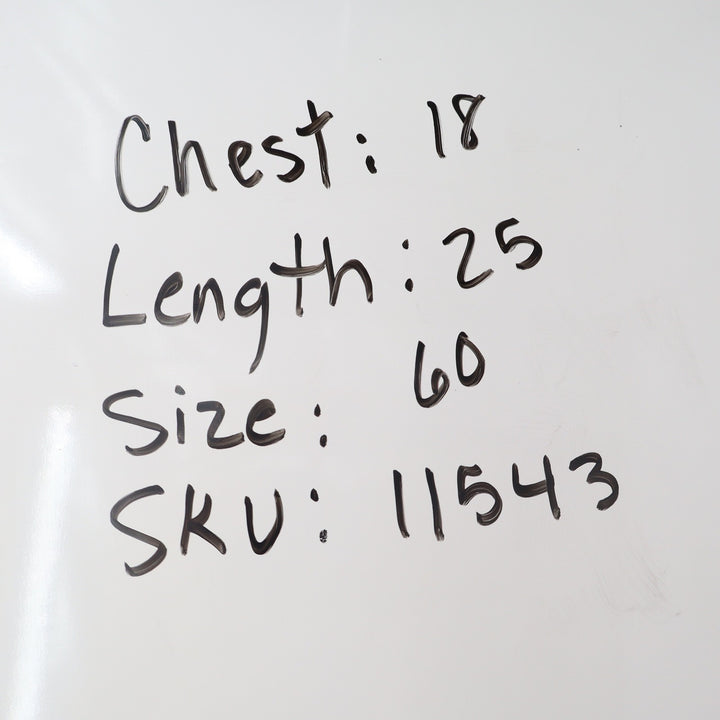 Chest: 18
Length: 25
Size: 60
SKU: 11543